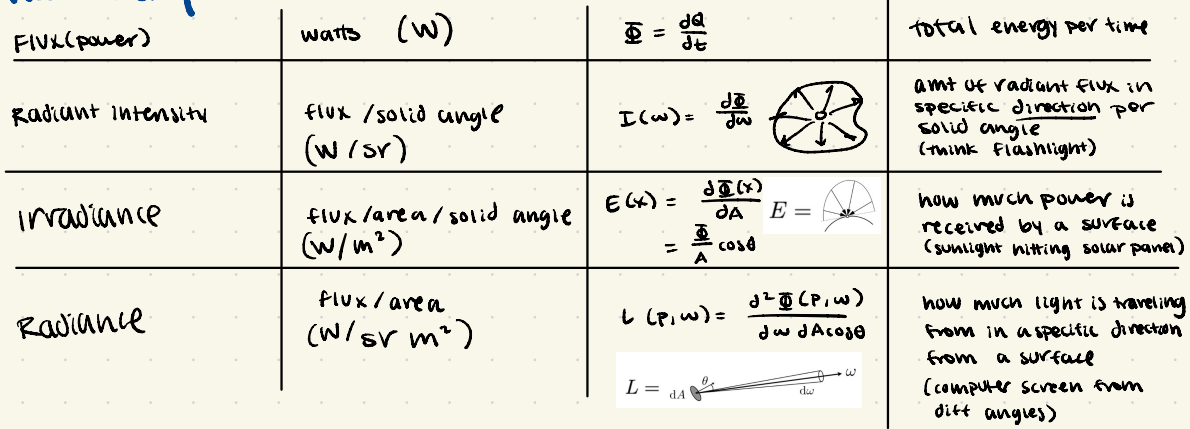 Flux (power)
watts (W)
Φ = dQ/dt
total energy per time
Radiant intensity
flux /solid angle
(W / sr)
I(ω) = dΦ/dω
amt of radiant flux in
specific direction per
solid angle
(think flashlight)
irradiance
flux/area / solid angle
(W/m²)
E(x) = dΦ(x)/dA
= Φ/A cosθ
E =
how much power is
received by a surface
(sunlight hitting solar panel)
Radiance
flux/area
(W/sr m²)
L (p,ω) = d²Φ(p,ω)/dω dA cosθ
L = dA θ dω ω
how much light is traveling
from in a specific direction
from a surface
(computer screen from
diff angles)